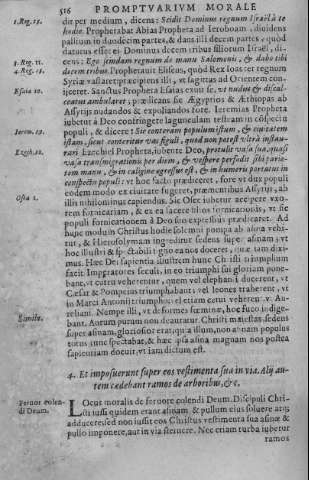 316 PROMPTVARIVM MORALE
1. Reg. 15.
dit per medium, dicens: Scidit Dominus regnum Israël à te
hodie. Prophetabat Abias Propheta ad Ieroboam, discidens
pallium in duodecim partes, & dans illi decem partes, quòd
daturus esset ei Dominus decem tribus filiorum Israël, di-
3. Reg. 11.
cens: Ego scindam regnum de manu Salomonis, & dabo tibi
4. Reg. 13.
decem tribus. Prophetauit Elisæus, quòd Rex Ioas
Syriæ vt sagittas ad Orientem con-
Esaiæ 20.
iiceret. Sanctus Propheta Esaias exiuit sic, vt nudus & discal-
ceatus ambularet, prædicans de Ægyptios & Æthiopas ab
Assyrijs nudandos & expoliandos fore. Ieremias Propheta
iubetur à Deo confringere lagunculam testeam in conspectu
Ierem. 19.
populi, & dicere: Sic conteram populum istum, & ciuitatem
istam, sicut conteritur vas figuli, quod non potest vltrà instau-
Ezech. 12.
rari. Ezechiel Propheta, iubente Deo, protulit vasa sua, quasi
vasa transmigrationis per diem, & vespere perfodit sibi parie-
tem manu, & in caligine egressus est, & in humeris portatus in
conspectu populi: vt hoc facto prædiceret, fore vt dux populi
eodem modo ex ciuitate fugeret, præmentibus Assyrijs, ab
Osea 1.
illis nihilominus capiendus. Sic Osee iubetur accipere vxo-
rem fornicariam, & ex ea facere filios fornicationis, vt sic
populi fornicationem à Deo sponso expressiùs prædiceret. Ad
hunc modum Christus hodie solemni pompa ab asina vehi-
tur, & Hierosolymam ingreditur sedens super asinam, vt
hoc illustri & spectabili signo ea nos doceret, quæ iam dixi-
mus. Hæc Dei sapientia illustrem hunc Christi triumphum
facit. Imperatores seculi, in eo triumphi sui gloriam pone-
bant, vt curru veherentur, quem vel elephanti ducerent, vt
Cæsar & Pompeius triumphabant: vel leones traherent, vt
in Marci Antonij triumpho: vel etiam cerui veherent, vt Au-
reliani. Nempe illi, vt deformes feminæ, hoc fuco indige-
Simile.
bant. Aurum purum non deauratur. Christi maiestas sedens
super asinam, gloriosior erat, quàm illum, non asinam populus
totus tunc spectabat, & hæc ipsa asina magnam nos postea
sapientiam docuit, vt iam dictum est.
4. Et imposuerunt super eos vestimenta sua in via. Alij au-
tem cædebant ramos de arboribus, &c.
Feruor colen-
di Deum.
Locus moralis de feruore colendi Deum. Discipuli Chri-
sti iussi quidem erant asinam & pullum eius soluere atque
adducere, sed non iussit eos Christus vestimenta sua asinæ &
pullo imponere, aut in via sternere. Nec etiam turba iubetur
ramos